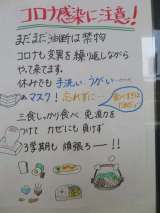 コロナ感染に注意!
まだまだ油断は禁物
コロナも変異を繰り返しながら
やって来ます。
休みでも手洗い、うがい……
のマスク!忘れずに…
三食しっかり食べ 免疫力を
つけて カゼにも負けず
3学期も 頑張ろー!!